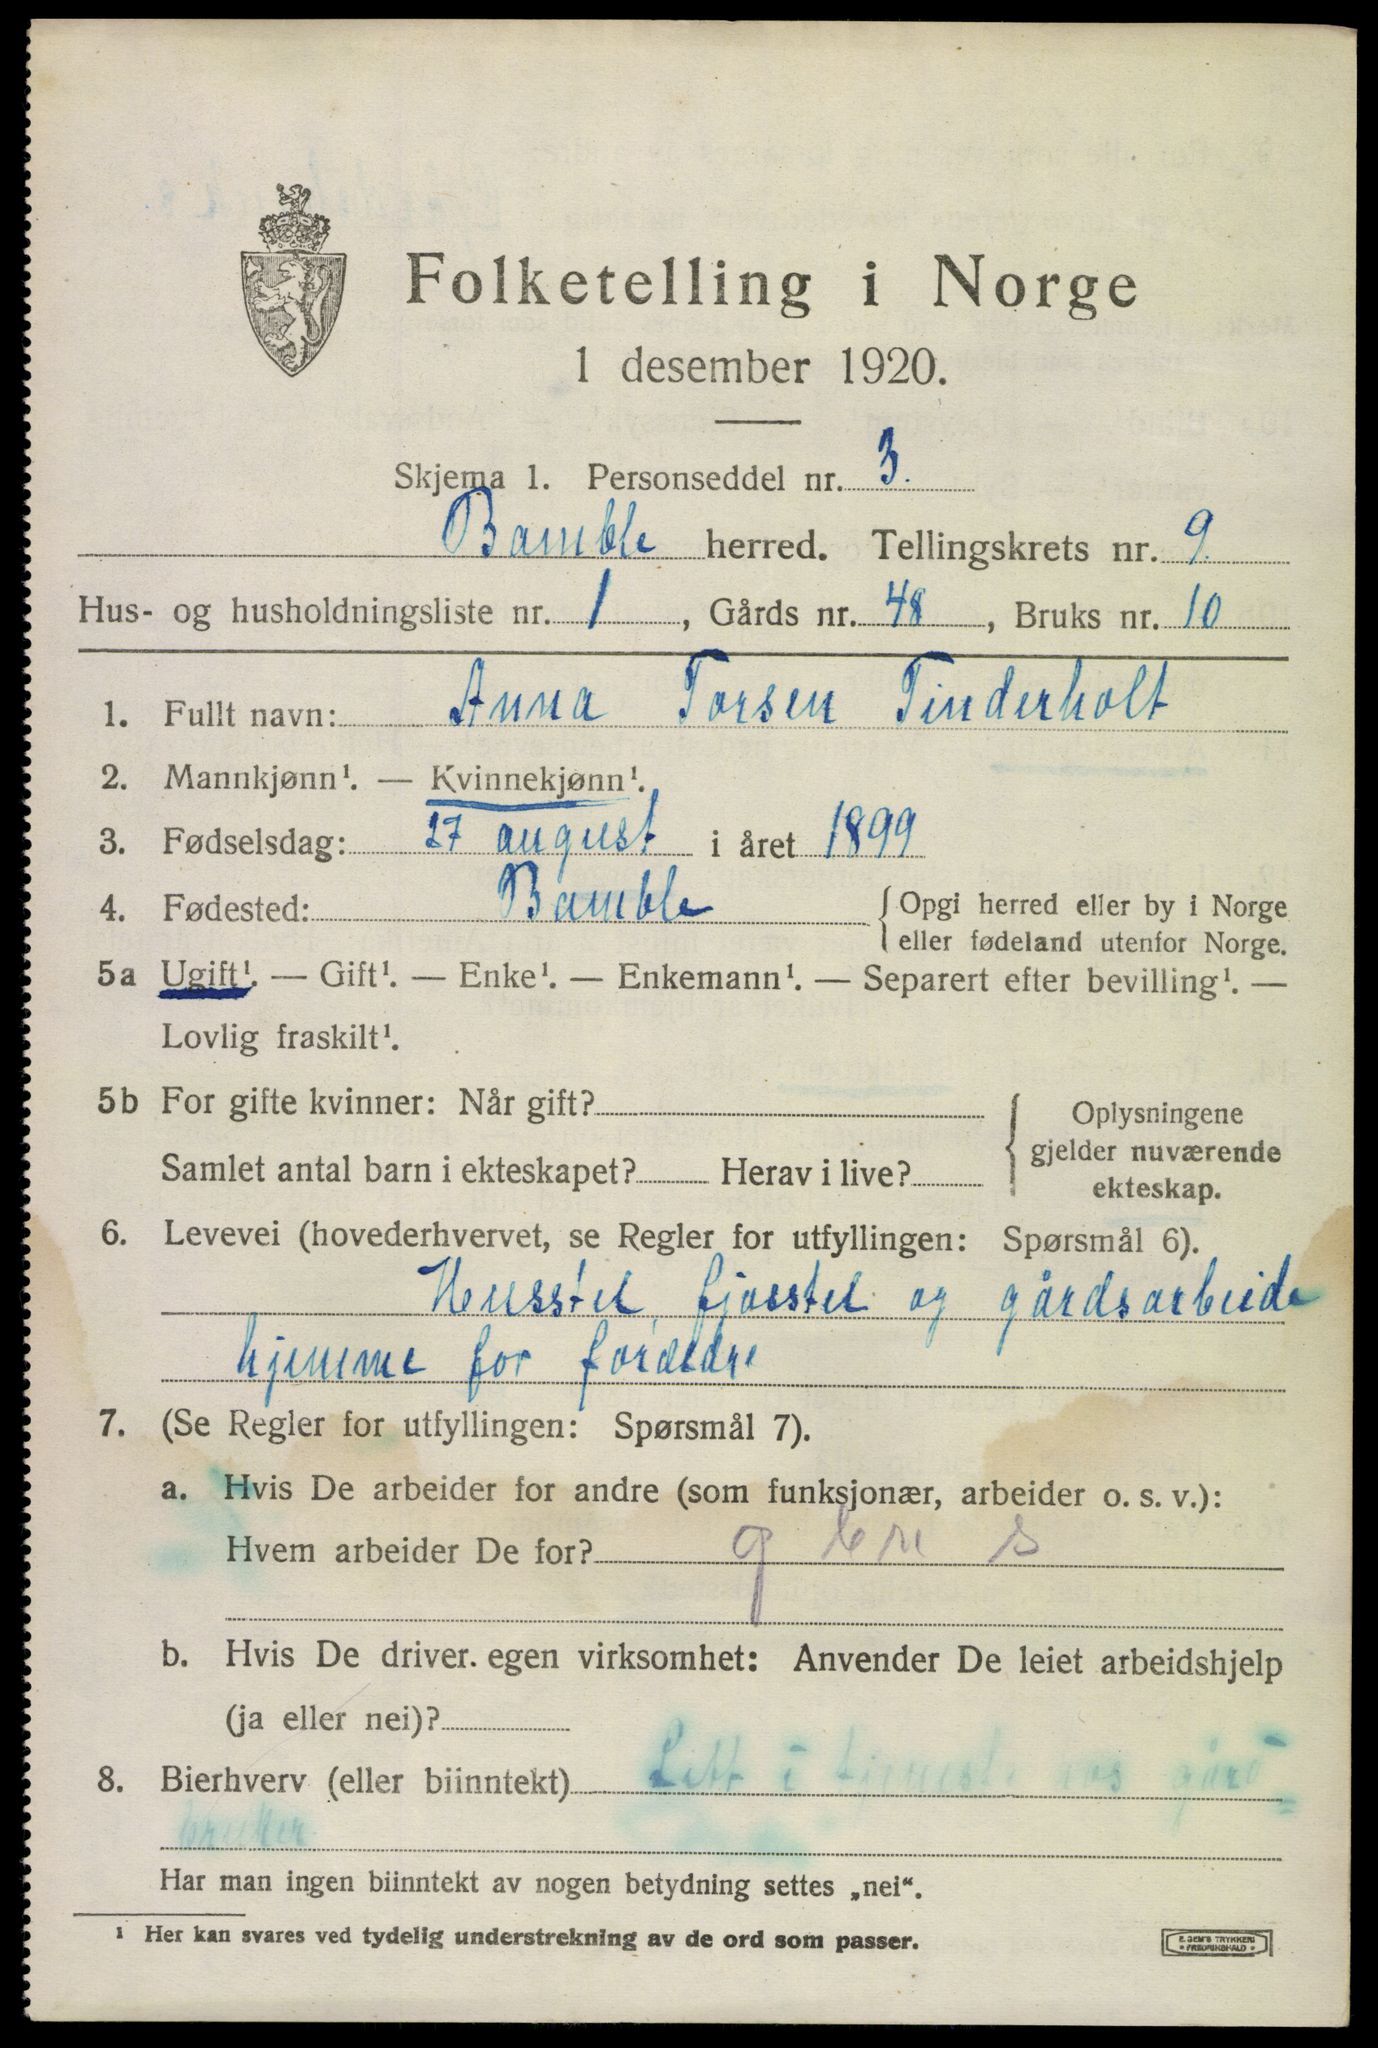 Folketelling i Norge
1 desember 1920.
Skjema 1. Personseddel nr. 3.
Bamble herred. Tellingskrets nr. 9.
Hus- og husholdningsliste nr. 1, Gårds nr. 48, Bruks nr. 10
1. Fullt navn: Anna Torsen Tinderholt
2. Mannkjønn¹. — Kvinnekjønn¹.
3. Fødselsdag: 27 august i året 1899
4. Fødested: Bamble {Opgi herred eller by i Norge
eller fødeland utenfor Norge.
5a Ugift¹. — Gift¹. — Enke¹. — Enkemann¹. — Separert efter bevilling¹. —
Lovlig fraskilt¹.
5b For gifte kvinner: Når gift?
Samlet antal barn i ekteskapet? Herav i live?
{Oplysningene
gjelder nuværende
ekteskap.
6. Levevei (hovederhvervet, se Regler for utfyllingen: Spørsmål 6).
Husstel, fjosstel og gårdsarbeide
hjemme for forældre
7. (Se Regler for utfyllingen: Spørsmål 7).
a. Hvis De arbeider for andre (som funksjonær, arbeider o. s. v.):
Hvem arbeider De for? g s
b. Hvis De driver. egen virksomhet: Anvender De leiet arbeidshjelp
(ja eller nei)?
8. Bierhverv (eller biinntekt) Litt i tjeneste hos gård
bruker
Har man ingen biinntekt av nogen betydning settes „nei“.
¹ Her kan svares ved tydelig understrekning av de ord som passer.
E. SEM'S TRYKKERI
FREDRIKSHALD